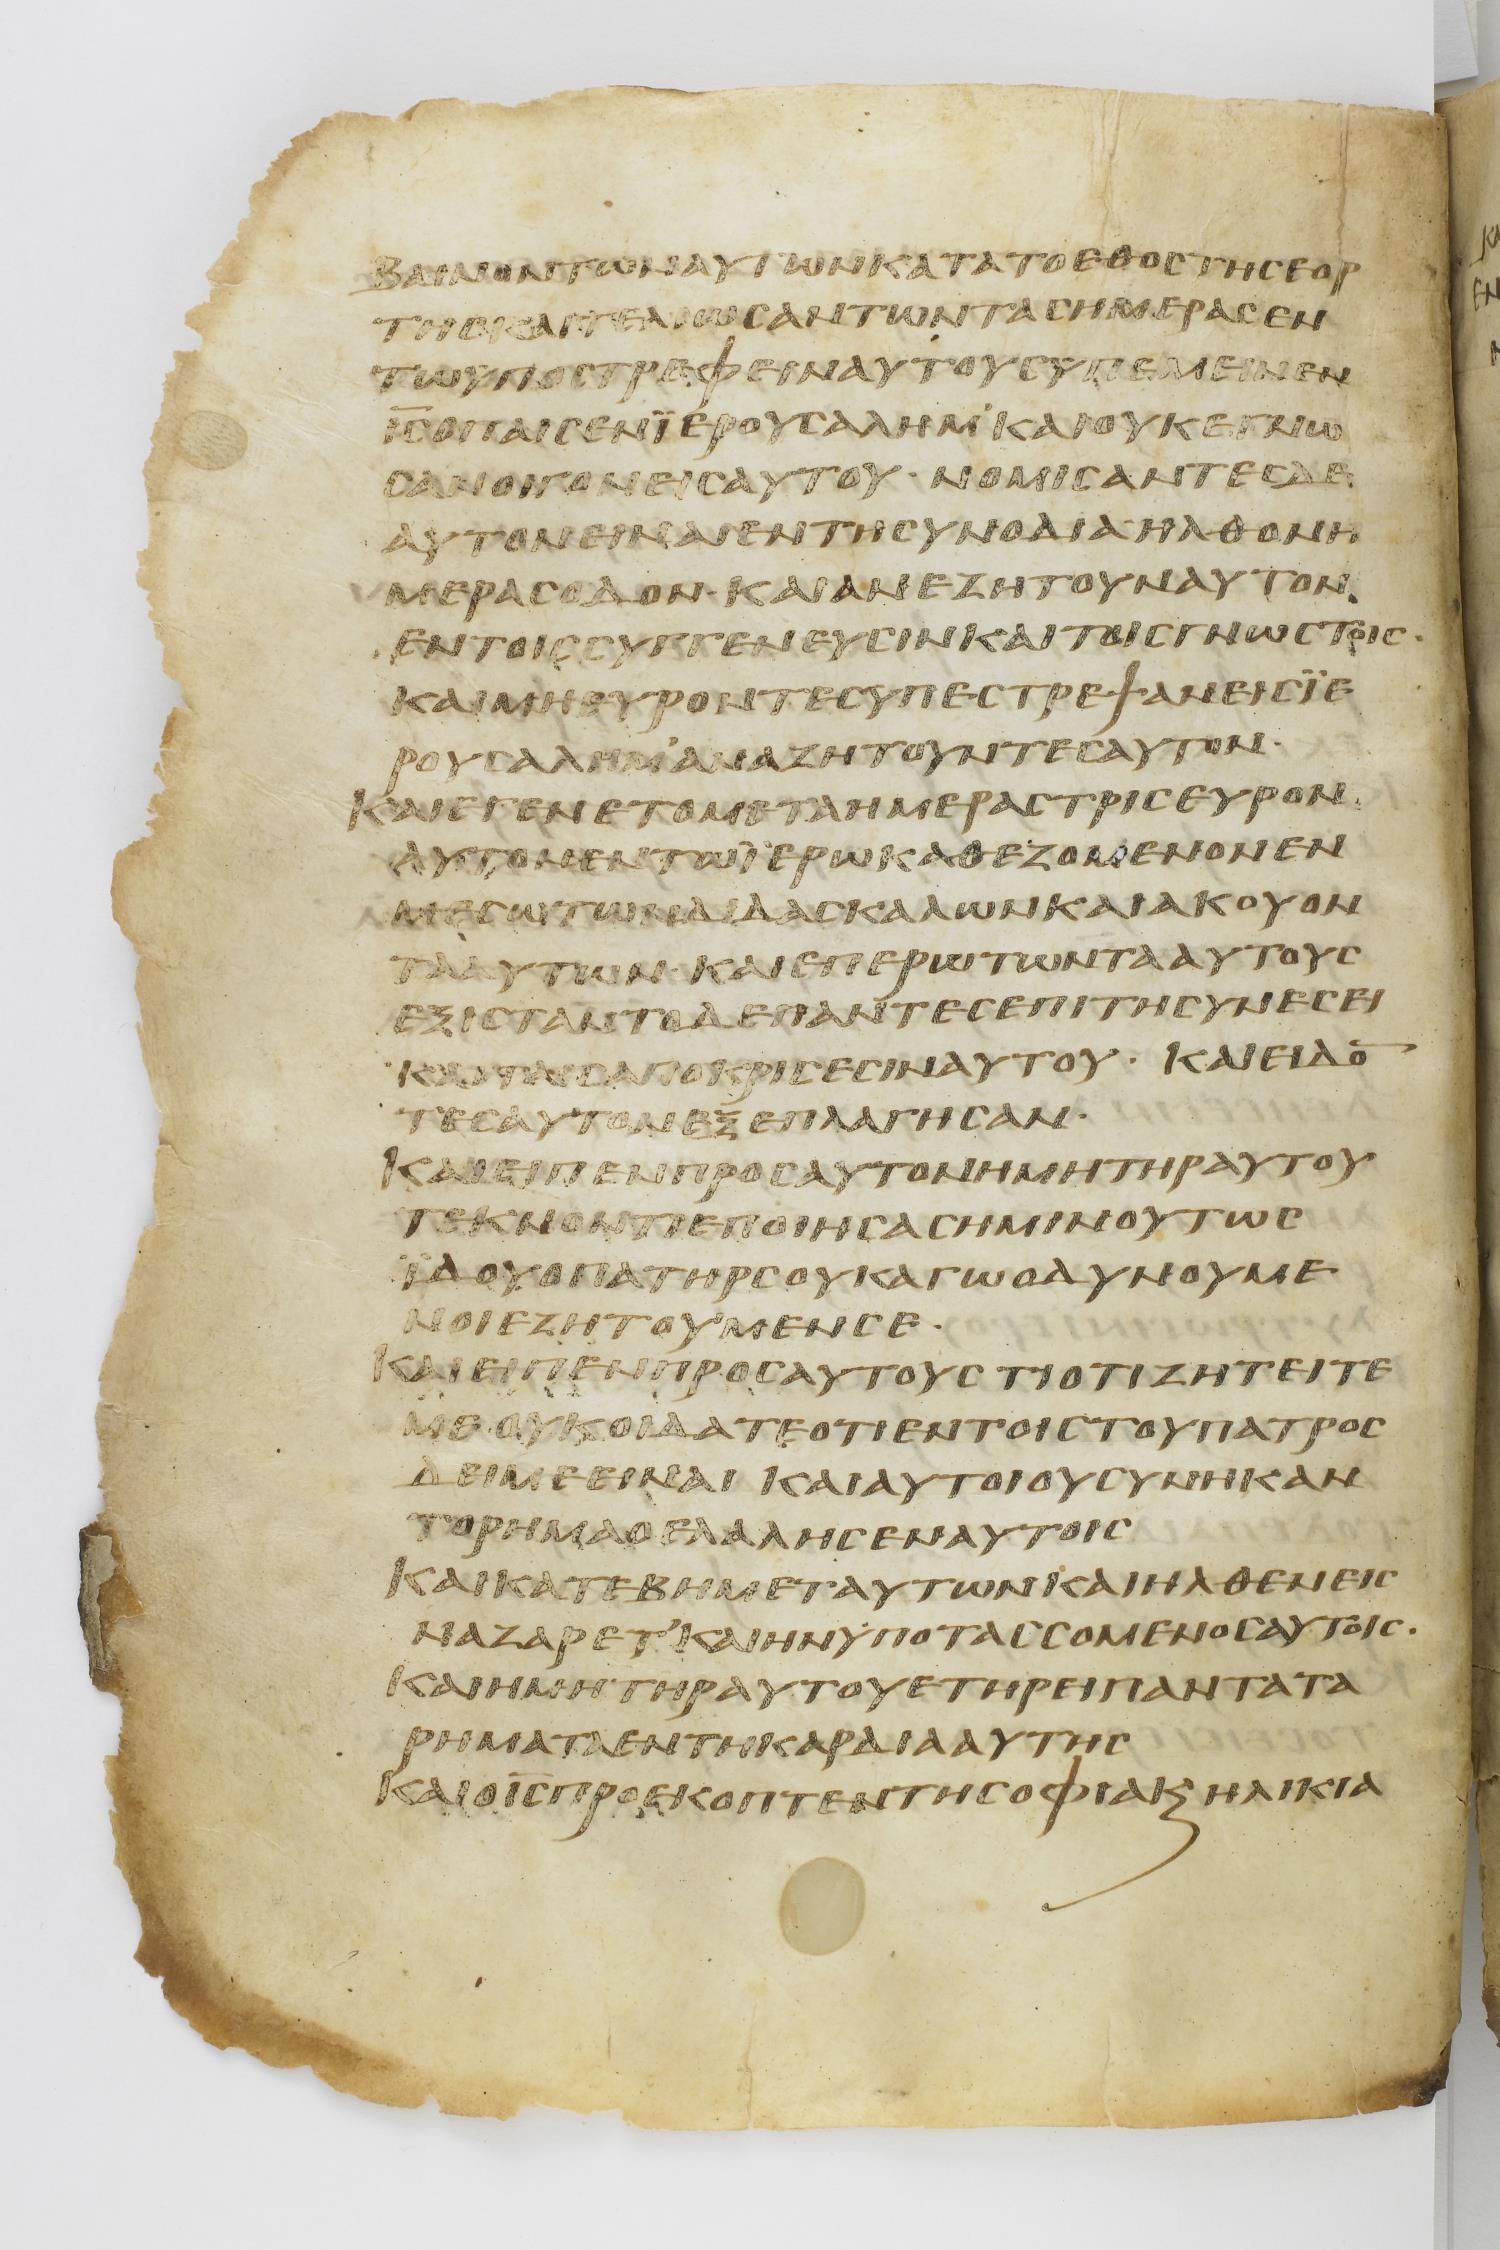 ΒΑΙΝΟΝΤΩΝΑΥΤΩΝΚΑΤΑΤΟΕΘΟΣΤΗΣΕΟΡ
ΤΗΣΚΑΙΤΕΛΙΩΣΑΝΤΩΝΤΑΣΗΜΕΡΑΣΕΝ
ΤΩΥΠΟΣΤΡΕΦΕΙΝΑΥΤΟΥΣΥΠΕΜΕΙΝΕΝ
Ι̅Σ̅ΟΠΑΙΣΕΝΪΕΡΟΥΣΑΛΗΜ'ΚΑΙΟΥΚΕΓΝΩ
ΣΑΝΟΙΓΟΝΕΙΣΑΥΤΟΥ· ΝΟΜΙΣΑΝΤΕΣΔΕ
ΑΥΤΟΝΕΙΝΑΙΕΝΤΗΣΥΝΟΔΙΑ·ΗΛΘΟΝΗ
ΜΕΡΑΣΟΔΟΝ· ΚΑΙΑΝΕΖΗΤΟΥΝΑΥΤΟΝ
ΕΝΤΟΙΣΣΥΓΓΕΝΕΥΣΙΝΚΑΙΤΟΙΣΓΝΩΣΤΟΙΣ·
ΚΑΙΜΗΕΥΡΟΝΤΕΣΥΠΕΣΤΡΕΨΑΝΕΙΣΪΕ
ΡΟΥΣΑΛΗΜ'ΑΝΑΖΗΤΟΥΝΤΕΣΑΥΤΟΝ·
ΚΑΙΕΓΕΝΕΤΟΜΕΤΑΗΜΕΡΑΣΤΡΙΣΕΥΡΟΝ
ΑΥΤΟΝΕΝΤΩΪΕΡΩΚΑΘΕΖΟΜΕΝΟΝΕΝ
ΜΕΣΩΤΩΝΔΙΔΑΣΚΑΛΩΝΚΑΙΑΚΟΥΟΝ
ΤΑΑΥΤΩΝ· ΚΑΙΕΠΕΡΩΤΩΝΤΑΑΥΤΟΥΣ
ΕΞΙΣΤΑΝΤΟΔΕΠΑΝΤΕΣΕΠΙΤΗΣΥΝΕΣΕΙ
ΚΑΙΤΑΙΣΑΠΟΚΡΙΣΕΣΙΝΑΥΤΟΥ· ΚΑΙΕΙΔΟ̅
ΤΕΣΑΥΤΟΝΕΞΕΠΛΑΓΗΣΑΝ·
ΚΑΙΕΙΠΕΝΠΡΟΣΑΥΤΟΝΗΜΗΤΗΡΑΥΤΟΥ
ΤΕΚΝΟΝΤΙΕΠΟΙΗΣΑΣΗΜΙΝΟΥΤΩΣ
ΪΔΟΥΟΠΑΤΗΡΣΟΥΚΑΓΩΟΔΥΝΟΥΜΕ
ΝΟΙΕΖΗΤΟΥΜΕΝΣΕ·
ΚΑΙΕΙΠΕΝΠΡΟΣΑΥΤΟΥΣΤΙΟΤΙΖΗΤΕΙΤΕ
ΜΕ·ΟΥΚΟΙΔΑΤΕΟΤΙΕΝΤΟΙΣΤΟΥΠΑΤΡΟΣ
ΔΕΙΜΕΕΙΝΑΙ ΚΑΙΑΥΤΟΙΟΥΣΥΝΗΚΑΝ
ΤΟΡΗΜΑΟΕΛΑΛΗΣΕΝΑΥΤΟΙΣ
ΚΑΙΚΑΤΕΒΗΜΕΤΑΥΤΩΝΚΑΙΗΛΘΕΝΕΙΣ
ΝΑΖΑΡΕΤ'ΚΑΙΗΝΥΠΟΤΑΣΣΟΜΕΝΟΣΑΥΤΟΙΣ·
ΚΑΙΗΜΗΤΗΡΑΥΤΟΥΕΤΗΡΕΙΠΑΝΤΑΤΑ
ΡΗΜΑΤΑΕΝΤΗΚΑΡΔΙΑΑΥΤΗΣ
ΚΑΙΟΙ̅Σ̅ΠΡΟΕΚΟΠΤΕΝΤΗΣΟΦΙΑϗΗΛΙΚΙΑ